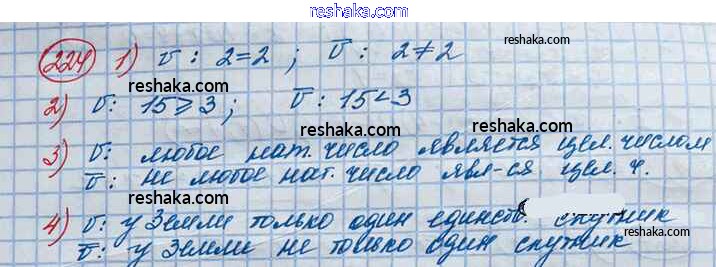 reshaka.com
224 1) v: 2=2 ; v̅: 2≠2
reshaka.com
2) v: 15⩾3 ; v̅: 15<3
reshaka.com
3) v: любое нат. число является цел. числом
v̅: не любое нат. число явл-ся цел. ч.
reshaka.com
4) v: у Земли только один единств. спутник
v̅: у Земли не только один спутник
reshaka.com